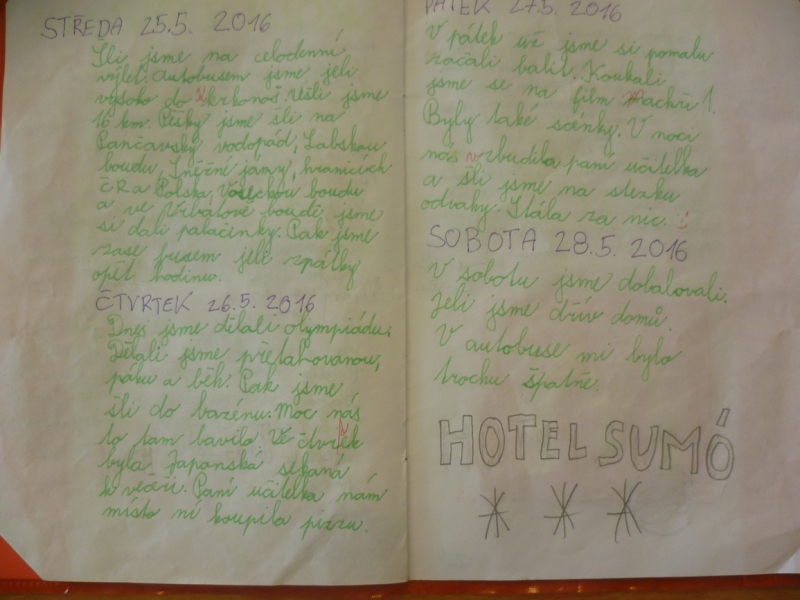 STŘEDA 25.5. 2016
Šli jsme na celodenní
výlet. Autobusem jsme jeli
vysoko do Krkonoš. Ušli jsme
16 km. Pěšky jsme šli na
Pančavský vodopád, Labskou
boudu, Sněžné jámy, hranicích
ČR a Polska, Voseckou boudu
a ve boudě, jsme
si dali palačinky. Pak jsme
zase busem jeli zpátky
opět hodinu.
ČTVRTEK 26.5. 2016
Dnes jsme dělali olympiádu.
Dělali jsme přetahovanou,
páku a běh. Pak jsme
šli do bazénu. Moc nás
to tam bavilo. Ve čtvrtek
byla Japanská sekaná
k večeři. Paní učitelka nám
místo ní koupila pizzu.
PÁTEK 27.5. 2016
V pátek už jsme si pomalu
začali balit. Koukali
jsme se na film Machři 1.
Byly také scénky. V noci
nás vzbudila paní učitelka
a šli jsme na stezku
odvahy. Stála za nic. :
SOBOTA 28.5. 2016
V sobotu jsme dobalovali.
Jeli jsme dřív domů.
V autobuse mi bylo
trochu špatně.
HOTEL SUMÓ